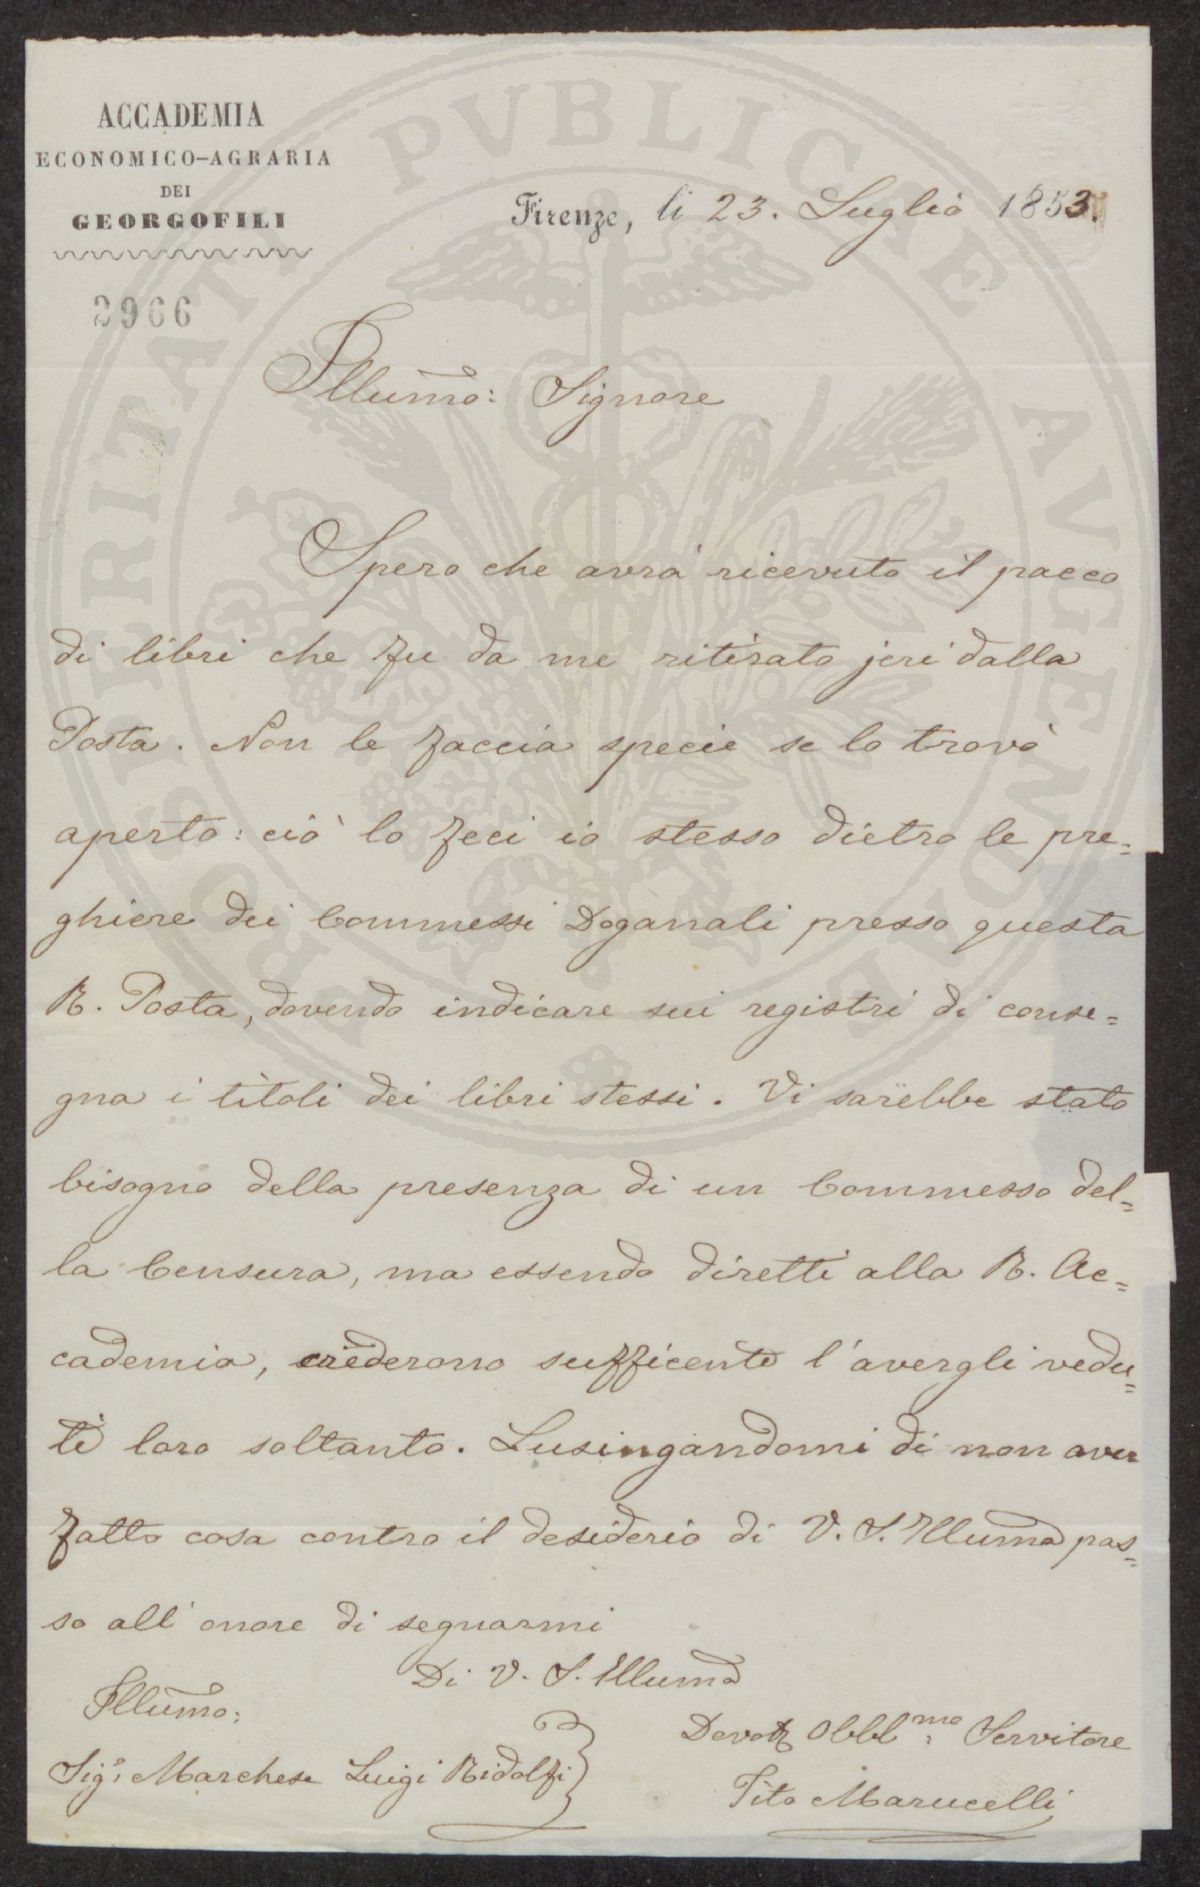 ACCADEMIA
ECONOMICO-AGRARIA
DEI
GEORGOFILI
2966
Firenze, li 23. Luglio 1853.
Illumo: Signore
Spero che avrà ricevuto il pacco
di libri che fu da me ritirato jeri dalla
Posta. Non le faccia specie se lo trovò
aperto: ciò lo feci io stesso dietro le pre=
ghiere dei Commessi Doganali presso questa
R. Posta, dovendo indicare sui registri di conse=
gna i titoli dei libri stessi. Vi sarebbe stato
bisogno della presenza di un Commesso del=
la Censura, ma essendo diretti alla R. Ac=
cademia, crederono sufficente l'avergli vedu=
ti loro soltanto. Lusingandomi di non aver
fatto cosa contro il desiderio di V. S. Illuma pas=
so all'onore di segnarmi
Di V. S. Illuma
Illumo:
Sigr: Marchese Luigi Ridolfi
Devot Obblmo: Servitore
Tito Marucelli
PROSPERITATI PVBLICAE AVGENDAE